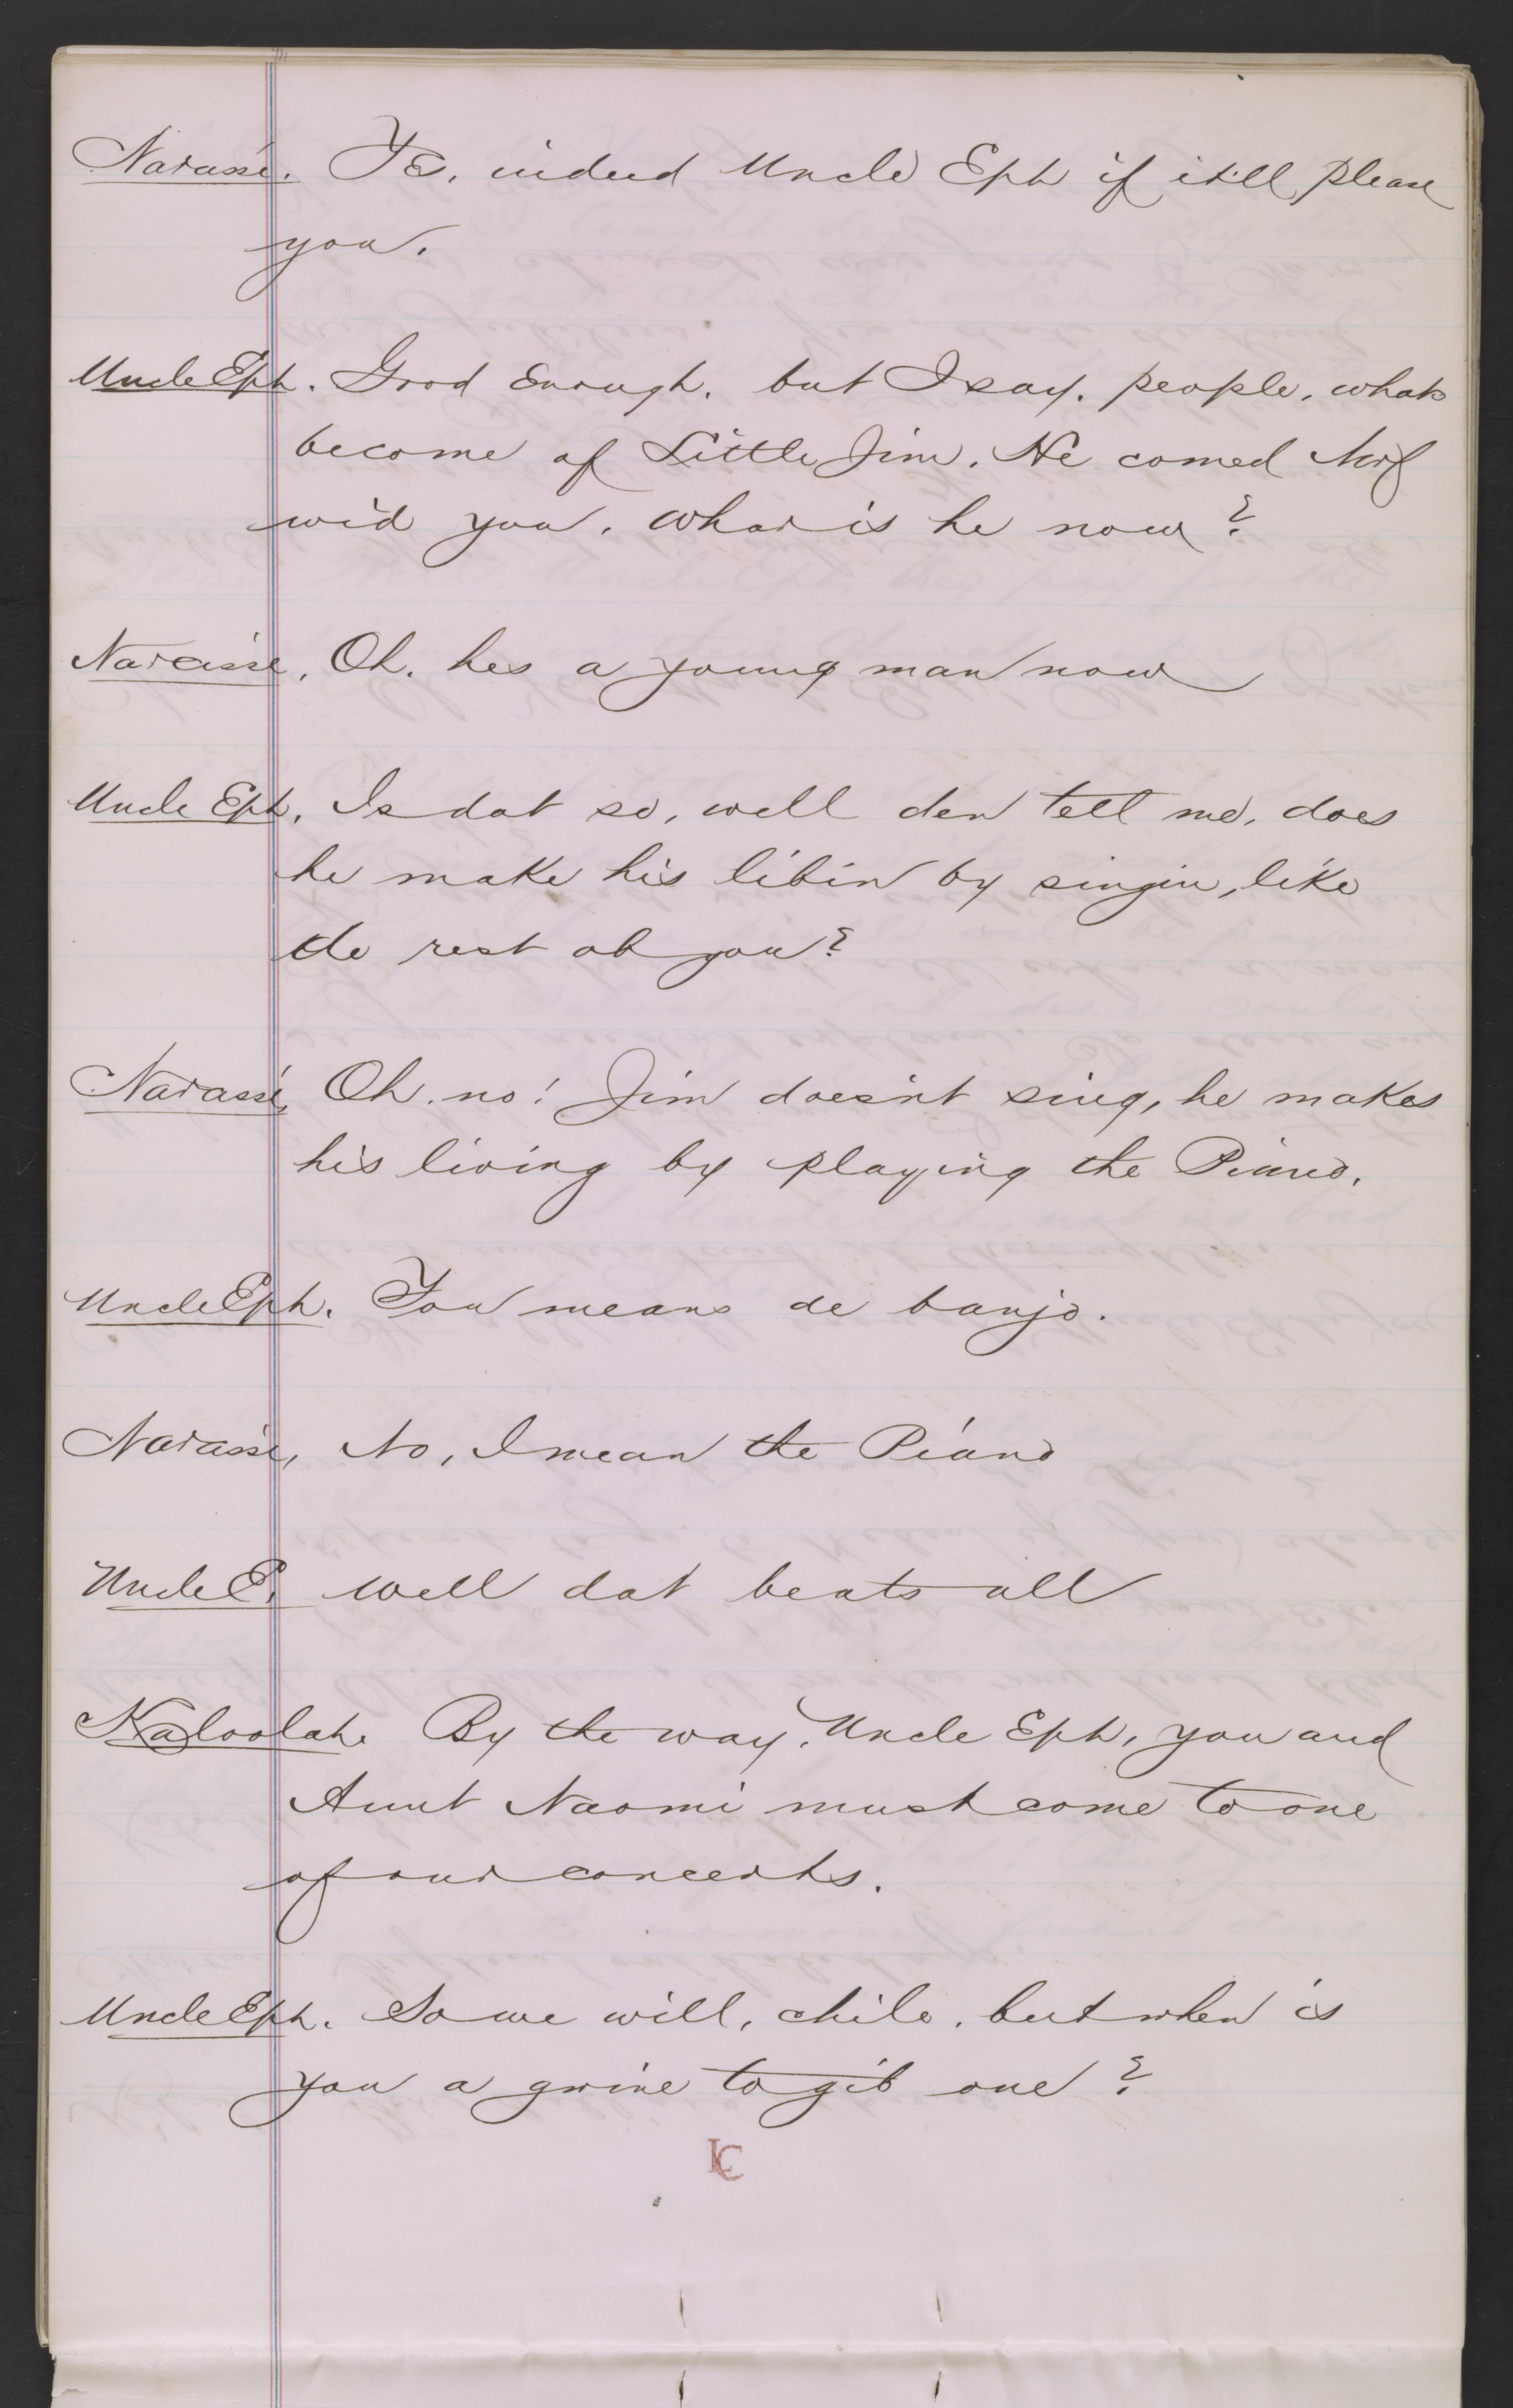 Narcisse. Yes, indeed Uncle Eph if it'll please
you.
Uncle Eph. Good enough, but I say, people, whats
become of Little Jim. He comed Norf
wid you. Whar is he now?
Narcisse, Oh, hes a young man now
Uncle Eph, Is dat so, well den tell me, does
he make his libin by singin, like
de rest ob you?
Narcisse, Oh, no! Jim doesn't sing, he makes
his living by playing the Piano,
Uncle Eph. You means de banjo.
Narcisse, No, I mean the Piano
Uncle E, Well dat beats all
Naloolah. By the way, Uncle Eph, you and
Aunt Naomi must come to one
of our concerts.
Uncle Eph. So we will, chile, but when is
you a gwine to gib one?
LC